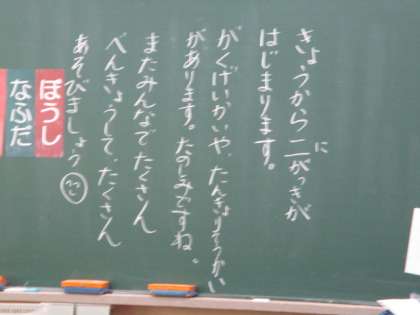 きょうから二がっきが
に
はじまります。
がくげいかいや、
があります。たのしみですね。
またみんなでたくさん
べんきょうして、たくさん
あそびましょう
ぼうし
なふだ